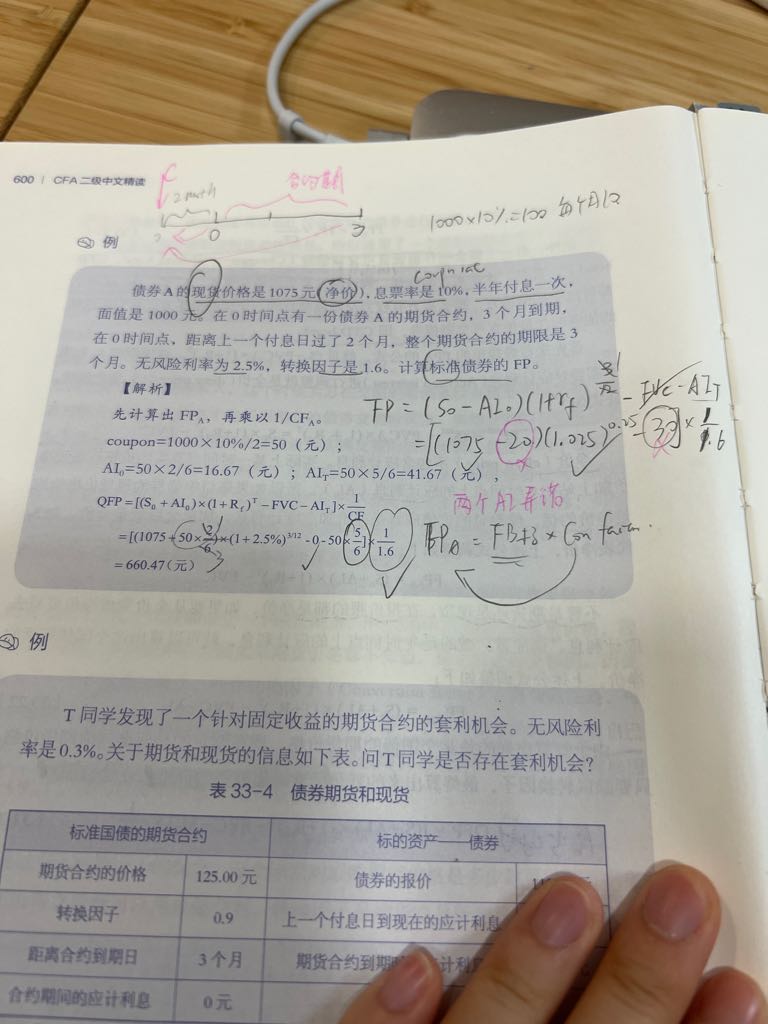 600 | CFA 二级中文精读
2 month
合约期
0
3
1000×10%=100
例
coupon rate
债券 A 的现货价格是 1075 元(净价),息票率是 10%,半年付息一次,
面值是 1000 元。在 0 时间点有一份债券 A 的期货合约,3 个月到期,
在 0 时间点,距离上一个付息日过了 2 个月,整个期货合约的期限是 3
个月。无风险利率为 2.5%,转换因子是 1.6。计算标准债券的 FP。
【解析】
先计算出 FP_A,再乘以 1/CF_A。
coupon=1000×10%/2=50(元);
AI₀=50×2/6=16.67(元);AI_T=50×5/6=41.67(元),
QFP=[(S₀+AI₀)×(1+R_f)^T−FVC−AI_T]×1/CF
=[(1075+50×2/6)×(1+2.5%)^3/12−0−50×5/6]×1/1.6
=660.47(元)
FP=(S0−AI₀)(1+rf) −FVC−AI_T
=[(1075−20)(1.025)^0.25−30]×1/1.6
两个AI弄错
例
T 同学发现了一个针对固定收益的期货合约的套利机会。无风险利
率是0.3%。关于期货和现货的信息如下表。问T同学是否存在套利机会?
表 33-4 债券期货和现货
标准国债的期货合约 标的资产——债券
期货合约的价格 125.00 元 债券的报价
转换因子 0.9 上一个付息日到现在的应计利息
距离合约到期日 3 个月 期货合约到期
合约期间的应计利息 0 元